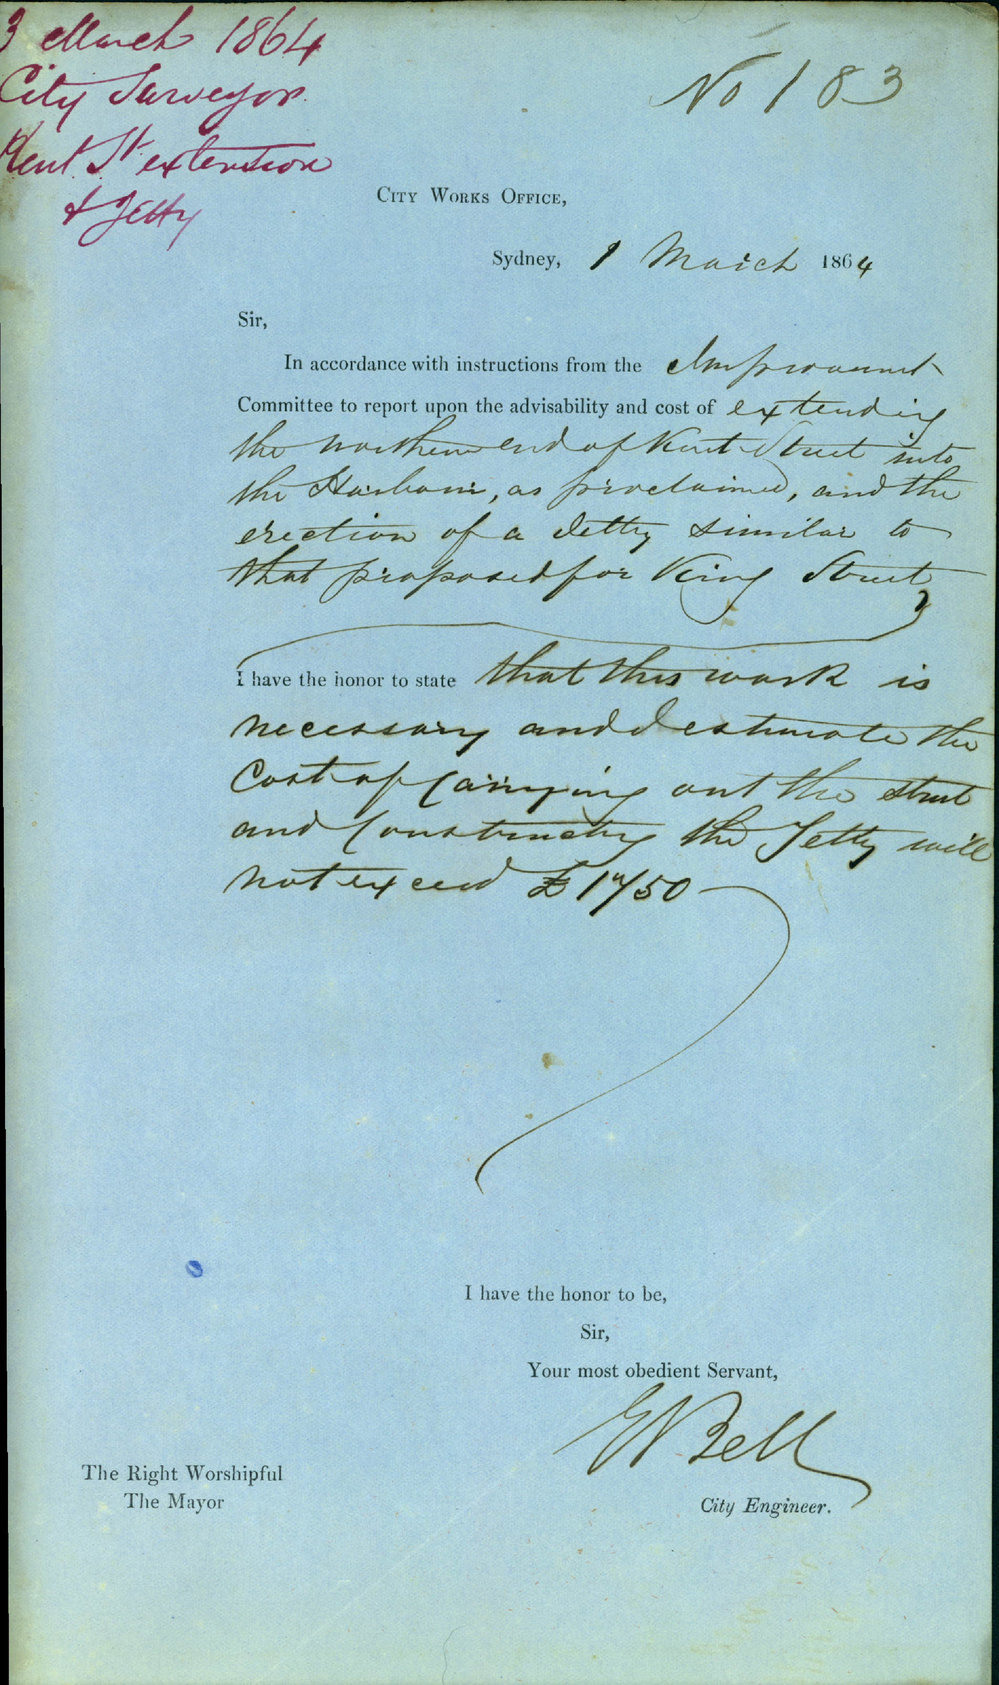 3 March 1864
City Surveyor
Kent St extension
& Jetty
No 183
City Works Office,
Sydney, 1 March 1864
Sir,
In accordance with instructions from the Improvement
Committee to report upon the advisability and cost of extending
the northern end of Kent Street into
the Harbour, as proclaimed, and the
erection of a Jetty similar to
that proposed for King Street,
I have the honor to state that this work is
necessary and I estimate the
Cost of Carrying out the street
and Constructing the Jetty will
not exceed £1750
I have the honor to be,
Sir,
Your most obedient Servant,
E Bell
The Right Worshipful
The Mayor
City Engineer.